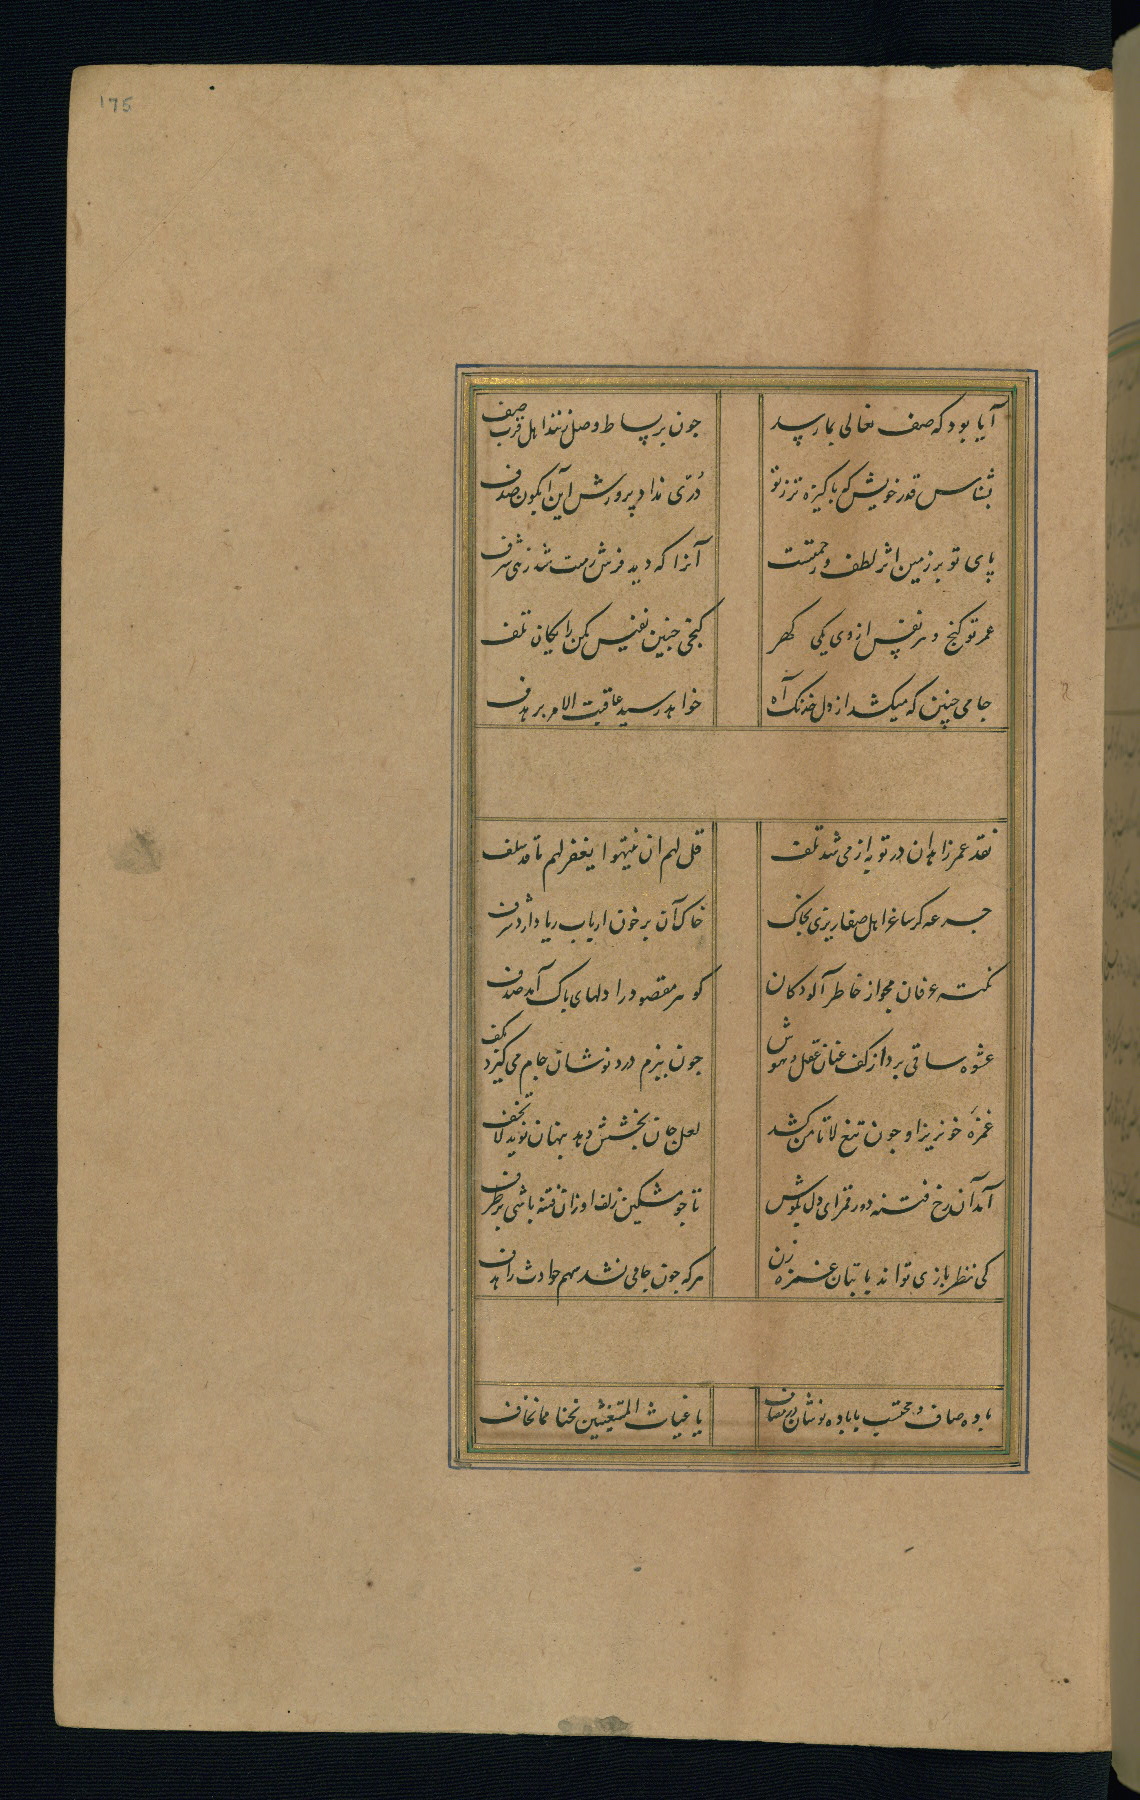 175
آیا بود که صف نعالی بما رسد
چون بر بساط وصل زنند اهل قرب صف
بشناس قدر خویش که پاکیزه تر ز تو
درّی نداد پرورش این آبگون صدف
پای تو بر زمین اثر لطف و رحمتست
آنرا که دید فرش رهت شد زهی شرف
عمر تو گنج و هر نفس از وی یکی گهر
گنجی چنین نفیس مکن رایگان تلف
جامی چنین که میکشد از دل خدنگ آه
خواهد رسید عاقبت الامر بر هدف
نقد عمر زاهدان در توبه از می شد تلف
قل لهم ان ینتهوا یغفر لهم ما قد سلف
جرعه کز ساغر اهل صفا ریزی بخاک
خاک آن بر خون ارباب ریا دارد شرف
نکته عرفان مجو از خاطر آلودگان
گوهر مقصود را دلهای پاک آمد صدف
عشوه ساقی برد از کف عنان عقل و هوش
چون ببزم دردنوشان جام می گیرد بکف
غمزه خونریز او چون تیغ لا تامن کشد
لعل جان بخشش دهد پنهان نوید لا تخف
آمد آن رخ فتنه دور قمر ای دل بکوش
تا چو مشکین زلف او زان فتنه باشی بر طرف
کی نظر بازی تواند با بتان غمزه زن
هر که چون جامی نشد سهم حوادث را هدف
باده صاف و محتسب با باده نوشان در مصاف
یا غیاث المستغیثین نجنا مما نخاف